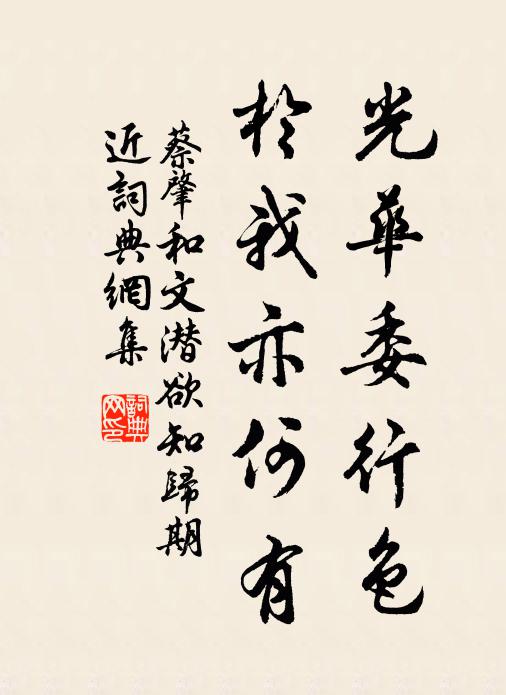 光華委行色
於我亦何有
蔡肇和文潜欲知歸期
近詞典網集
詞典網印